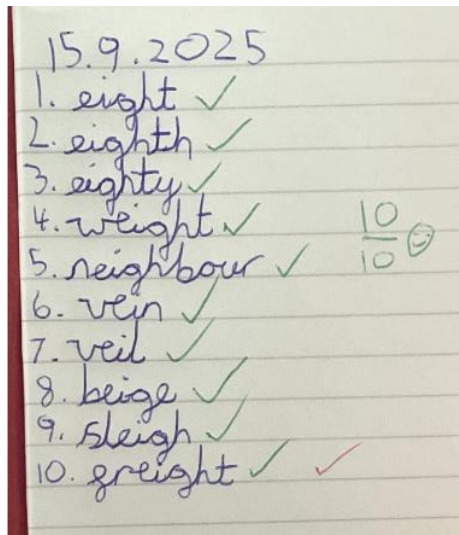 15.9.2025
1. eight
2. eighth
3. eighty
4. weight
5. neighbour
6. vein
7. veil
8. beige
9. sleigh
10. greight
10
10